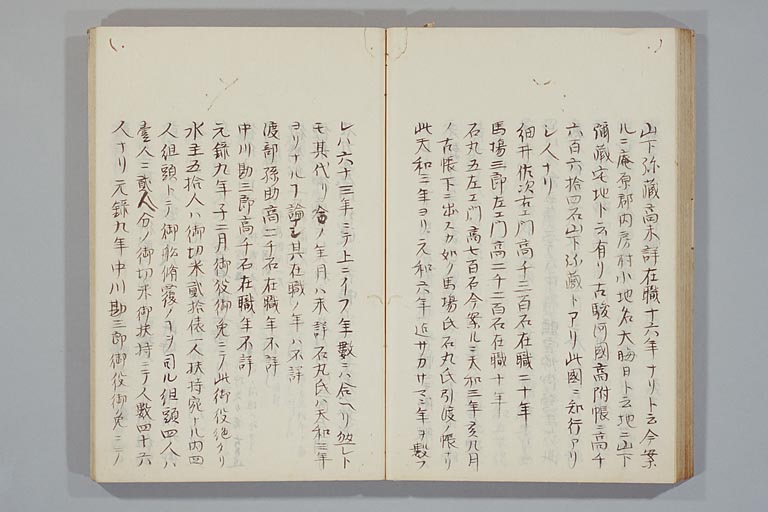 山下弥蔵高未詳在職十六年ナリト云今案
ルニ庵原郡内房村小地名大晦日ト云地ニ山下
弥蔵宅地ト云有リ古駿河國高附帳ニ高千
六百六拾四石山下弥蔵トアリ此國ニ知行アリ
シ人ナリ
細井佐次右エ門高千三百石在職二十年
馬場三郎左エ門高二千二百石在職十年
石丸五左エ門高七百石今案ルニ天和三年亥八月
ノ古帳下ニ出スカ如ノ馬場氏石丸氏引渡ノ帳ナリ
此天和三年ヨリ元和六年迠サカサマニ年ヲ数フ
レハ六十三年ニテ上ニイフ年數ニハ合ヘリ然レト
モ其代リ合ノ年月ハ未詳石丸氏ハ天和三年
ヨリナルヿ論ナシ其在職ノ年ハ不詳
渡部孫助高二千石在職年不詳
中川勘三郎高千石在職年不詳
元録九年子二月御役御免ニテ此御役絶タリ
水主五拾人ハ御切米貳拾俵一人扶持宛ト凡内四
人組頭トテ御舩脩覆ノヿヲ司ル組頭四人ハ
壹人ニ貳人分ノ御切米御扶持ニテ人數四十六
人ナリ元録九年中川勘三郎御役御免ニテ